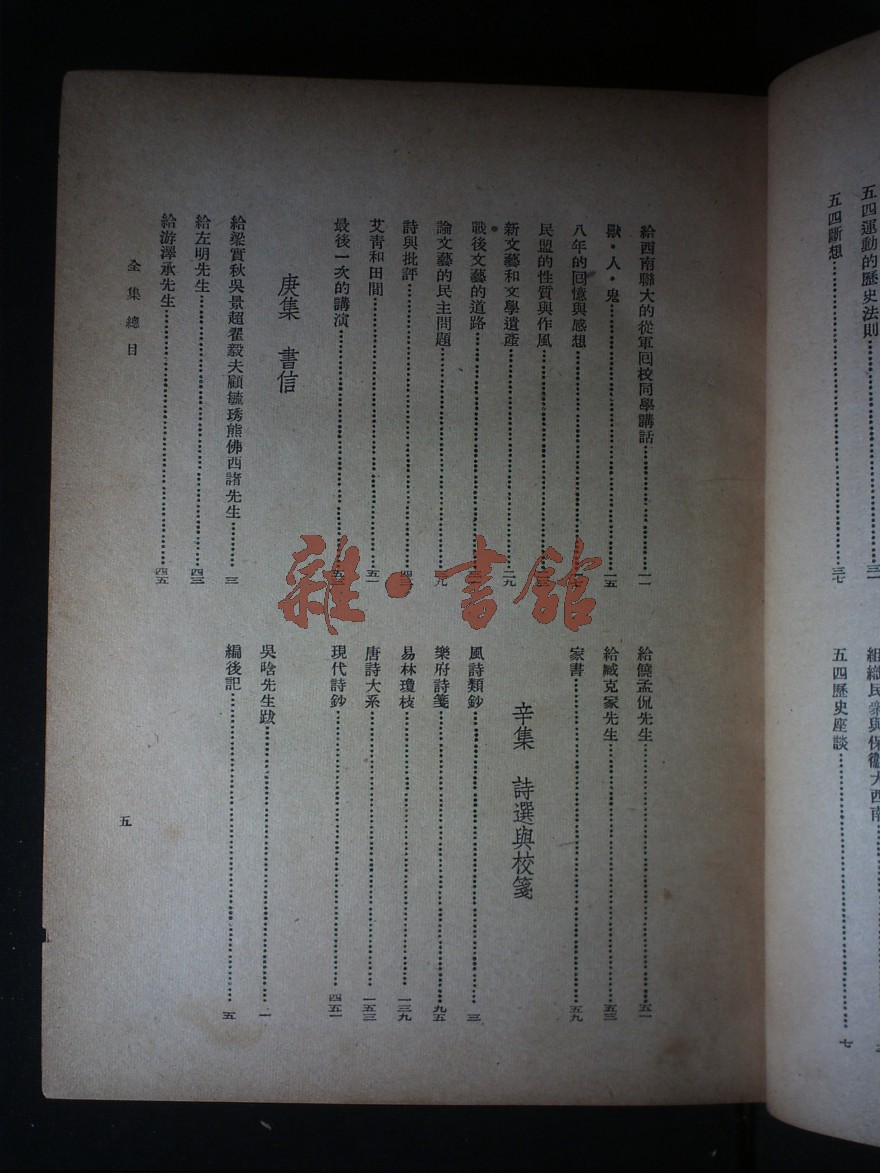 五四運動的歷史法則
五四斷想……三七
五四歷史座談……七
給西南聯大的從軍回校同學講話……一一
獸·人·鬼……一五
八年的回憶與感想
民盟的性質與作風
新文藝和文學遺產……二九
戰後文藝的道路
論文藝的民主問題
詩與批評
艾青和田間……五一
最後一次的講演
庚集 書信
給梁實秋吳景超翟毅夫顧毓琇熊佛西諸先生……三
給左明先生……四三
給游澤承先生……四五
給饒孟侃先生……五一
給臧克家先生……五三
家書……五九
辛集 詩選與校箋
風詩類鈔……三
樂府詩箋……九五
易林瓊枝……一三九
唐詩大系……一五三
現代詩鈔……四五一
吳晗先生跋……一
編後記……五
全集總目
五
雜·書館